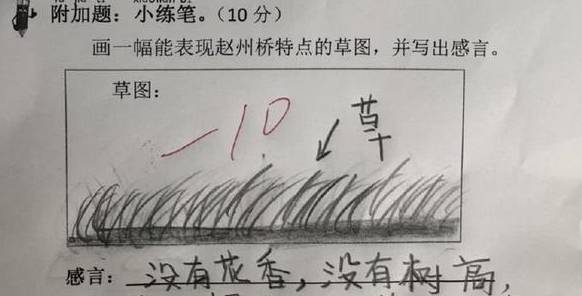 附加题：小练笔。（10 分）
画一幅能表现赵州桥特点的草图，并写出感言。
草图：
-10
草
感言：没有花香，没有树高，